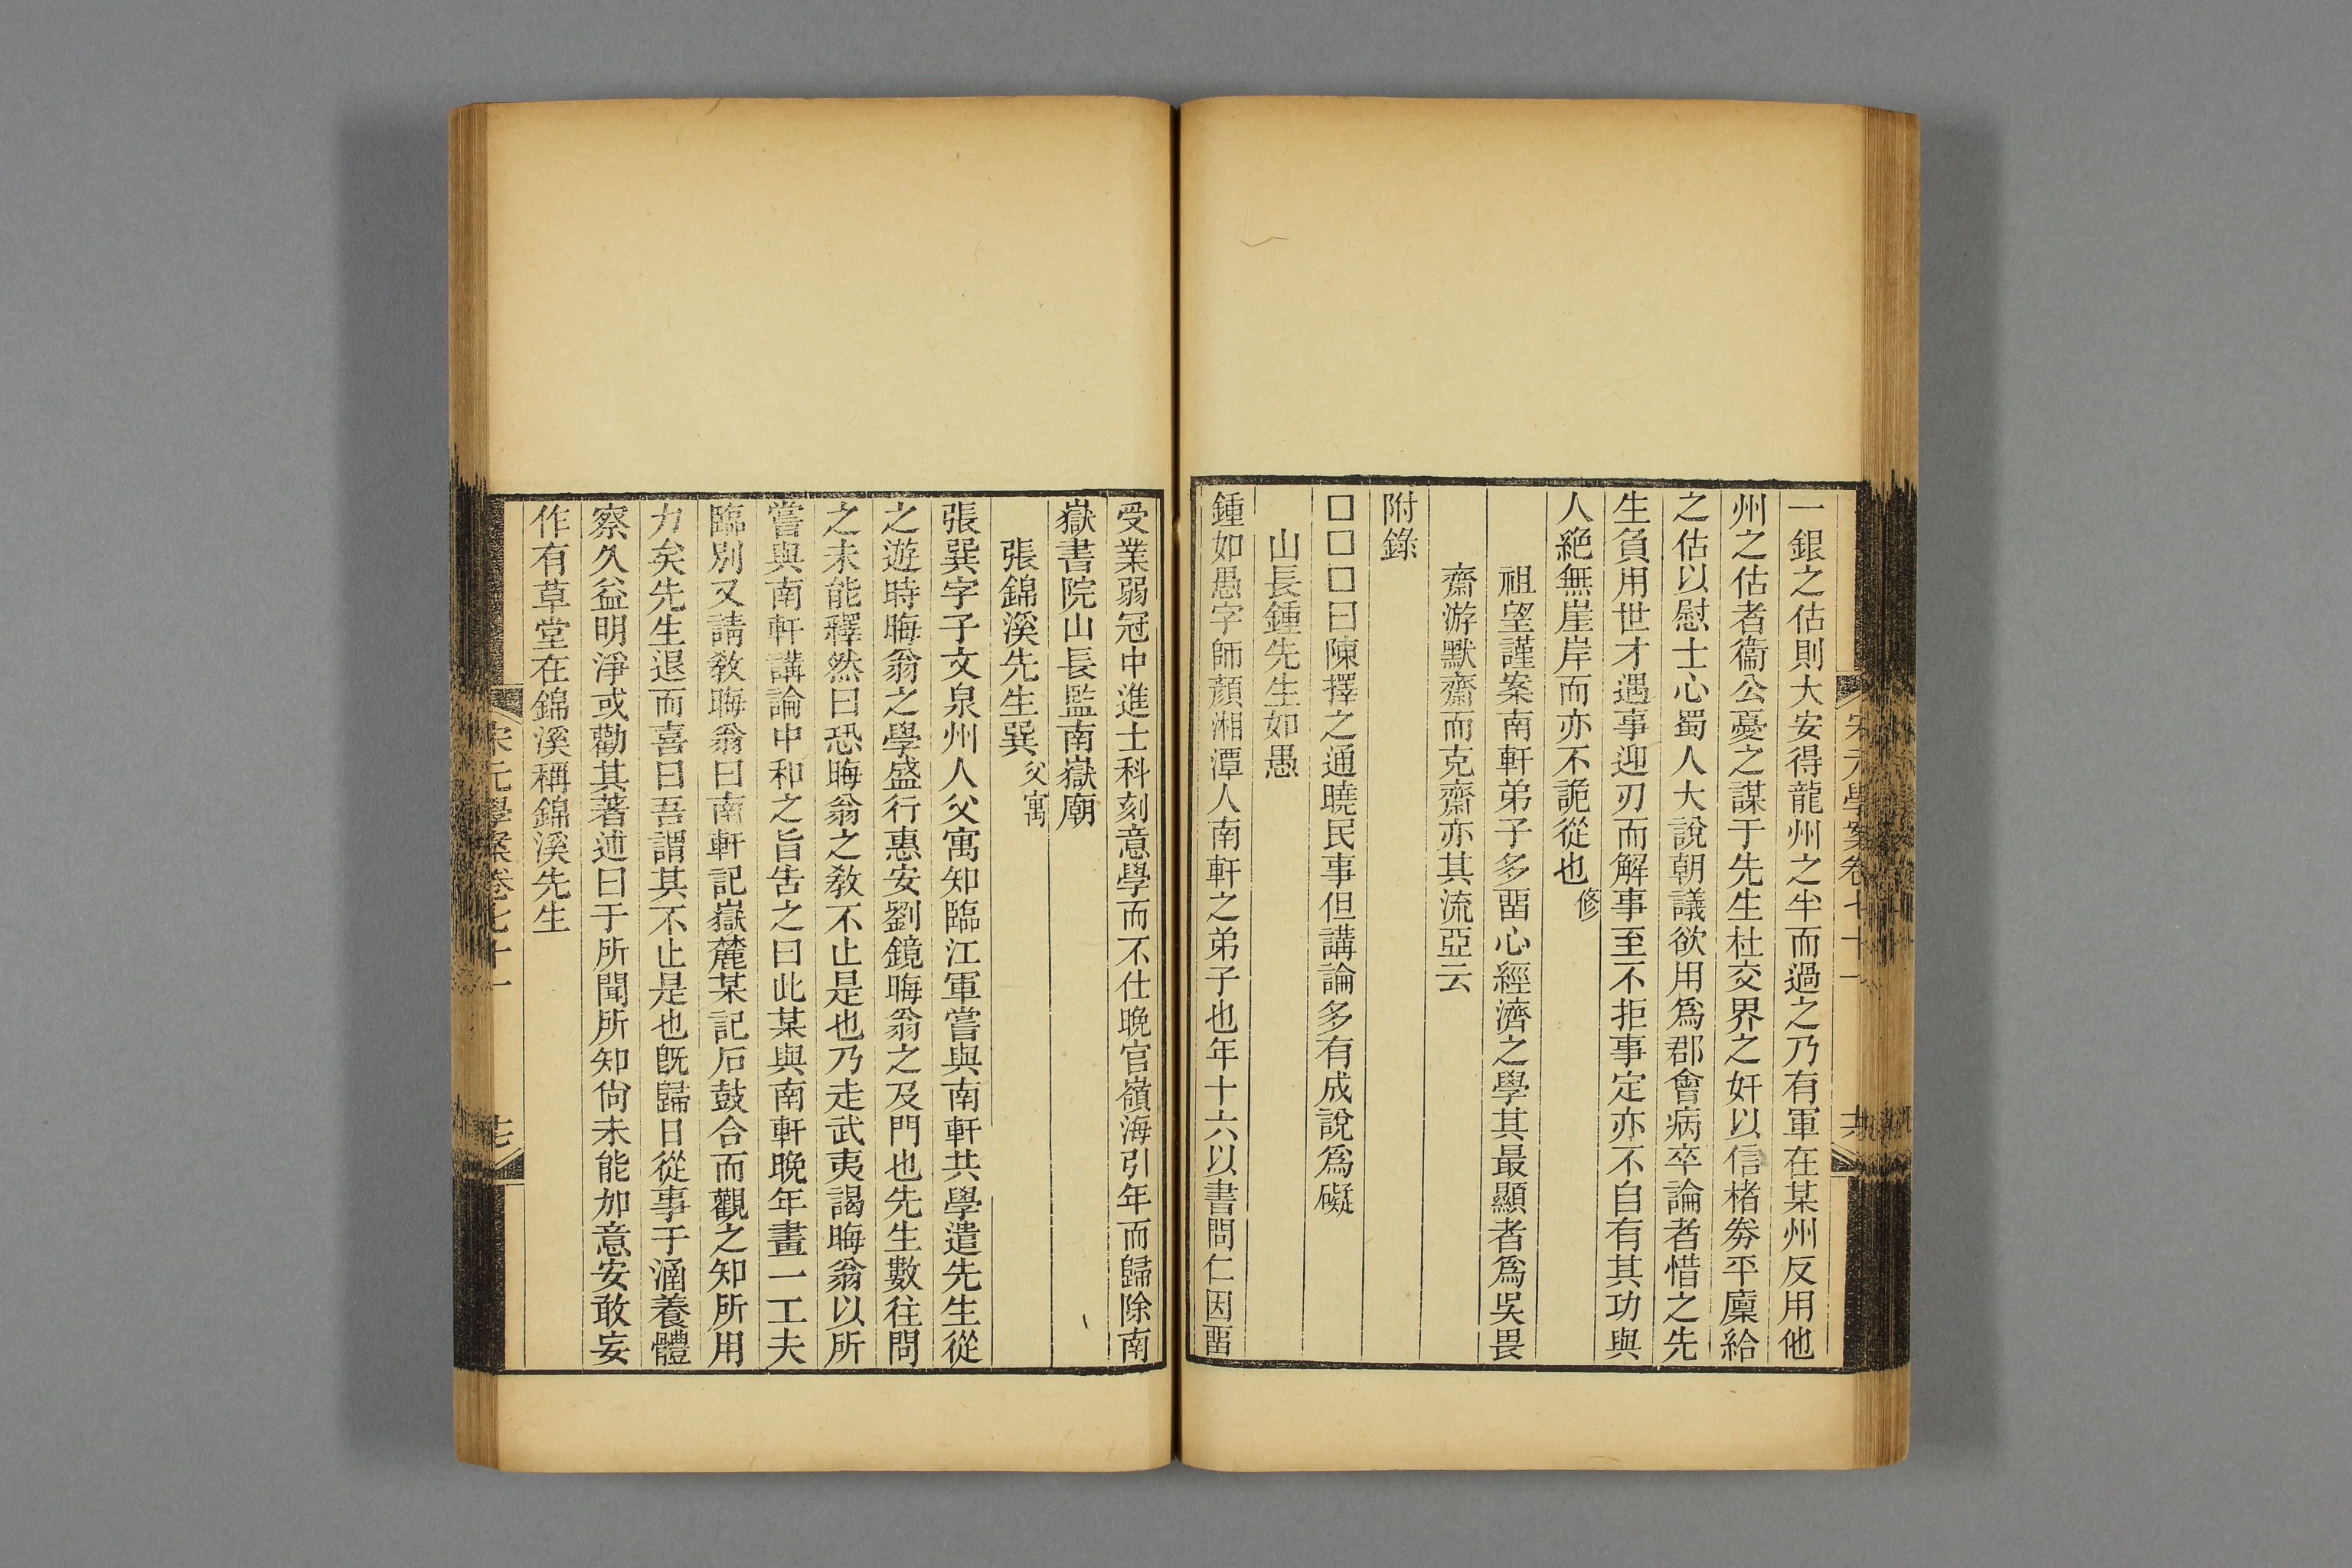 宋元學案卷七十一
一銀之估則大安得龍州之半而過之乃有軍在某州反用他
州之估者衞公憂之謀于先生杜交界之奸以信楮券平廩給
之估以慰士心蜀人大說朝議欲用爲郡會病卒論者惜之先
生負用世才遇事迎刃而解事至不拒事定亦不自有其功與
人絶無崖岸而亦不詭從也修
祖望謹案南軒弟子多畱心經濟之學其最顯者爲吳畏
齋游默齋而克齋亦其流亞云
附錄
□□□曰陳擇之通曉民事但講論多有成說爲礙
山長鍾先生如愚
鍾如愚字師顔湘潭人南軒之弟子也年十六以書問仁因畱
受業弱冠中進士科刻意學而不仕晚官嶺海引年而歸除南
嶽書院山長監南嶽廟
張錦溪先生巽父寓
張巽字子文泉州人父寓知臨江軍嘗與南軒共學遣先生從
之遊時晦翁之學盛行惠安劉鏡晦翁之及門也先生數往問
之未能釋然曰恐晦翁之敎不止是也乃走武夷謁晦翁以所
嘗與南軒講論中和之旨告之曰此某與南軒晚年畫一工夫
臨別又請敎晦翁曰南軒記嶽麓某記石鼓合而觀之知所用
力矣先生退而喜曰吾謂其不止是也旣歸日從事于涵養體
察久益明淨或勸其著述曰于所聞所知尙未能加意安敢妄
作有草堂在錦溪稱錦溪先生
宋元學案卷七十一